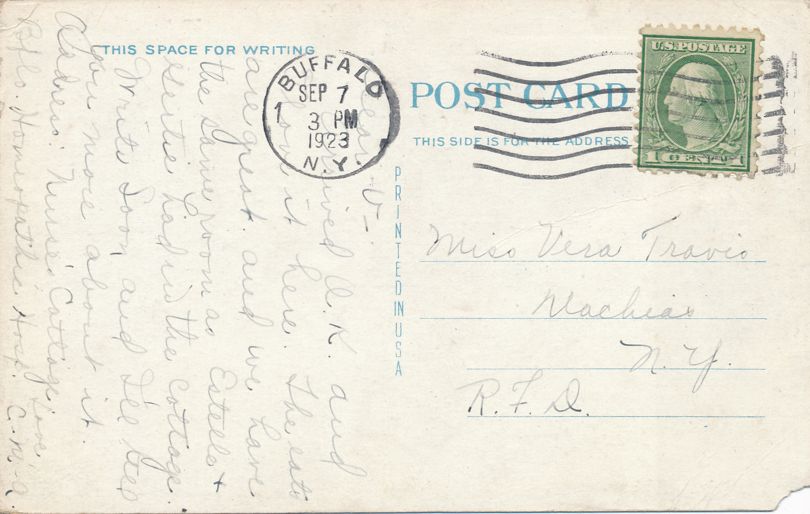 THIS SPACE FOR WRITING
BUFFALO
SEP 7
1
3 PM
1923
N.Y.
POST CARD
THIS SIDE IS FOR THE ADDRESS
U.S. POSTAGE
1 CENT 1
PRINTED IN USA
Miss Vera Travis
Machias
N.Y.
R.F.D.
Dear V—
Arrived O.K. and
it here. The eats
are great and we have
the same room as Estelle +
Gertie had in the cottage.
Write soon and I'll tell
you more about it.
Address Nurse's Cottage Love
B/o Homeopathic Hosp. C.M.